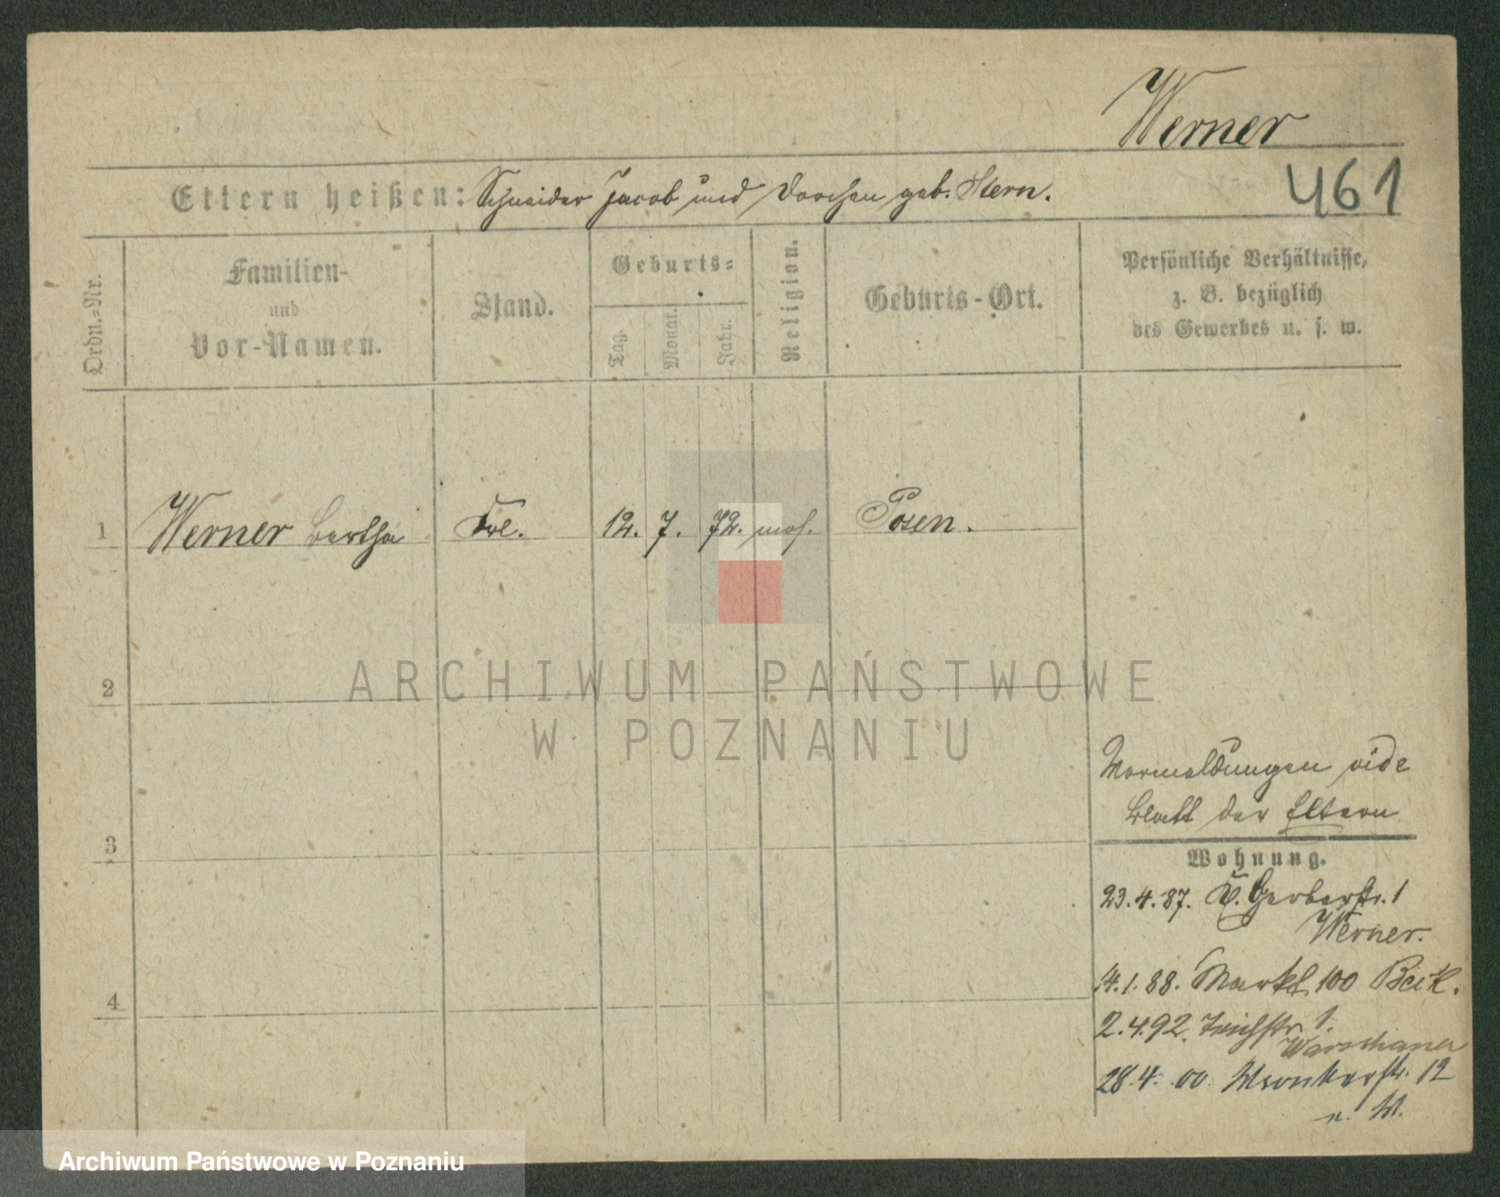 Werner
461
Eltern heißen: Schneider Jacob und Dorchen geb. Stern.
Ordn.-Nr.
Familien-
und
Vor-Namen.
Stand.
Geburts-
Tag.
Monat.
Jahr.
Religion.
Geburts-Ort.
Persönliche Verhältnisse,
z. B. bezüglich
des Gewerbes u. s. w.
1 Werner Bertha Frl. 12. 7. 72. mos. Posen.
2
3
4
ARCHIWUM PAŃSTWOWE
W POZNANIU
Vormeldungen vide
Blatt der Eltern
Wohnung.
23.4.87. Gerberstr. 1
Werner.
14.1.88. Markt 100
2.4.92. Teichstr. 1.
Warschauer
28.4.00. Wronkerstr. 12
Archiwum Państwowe w Poznaniu